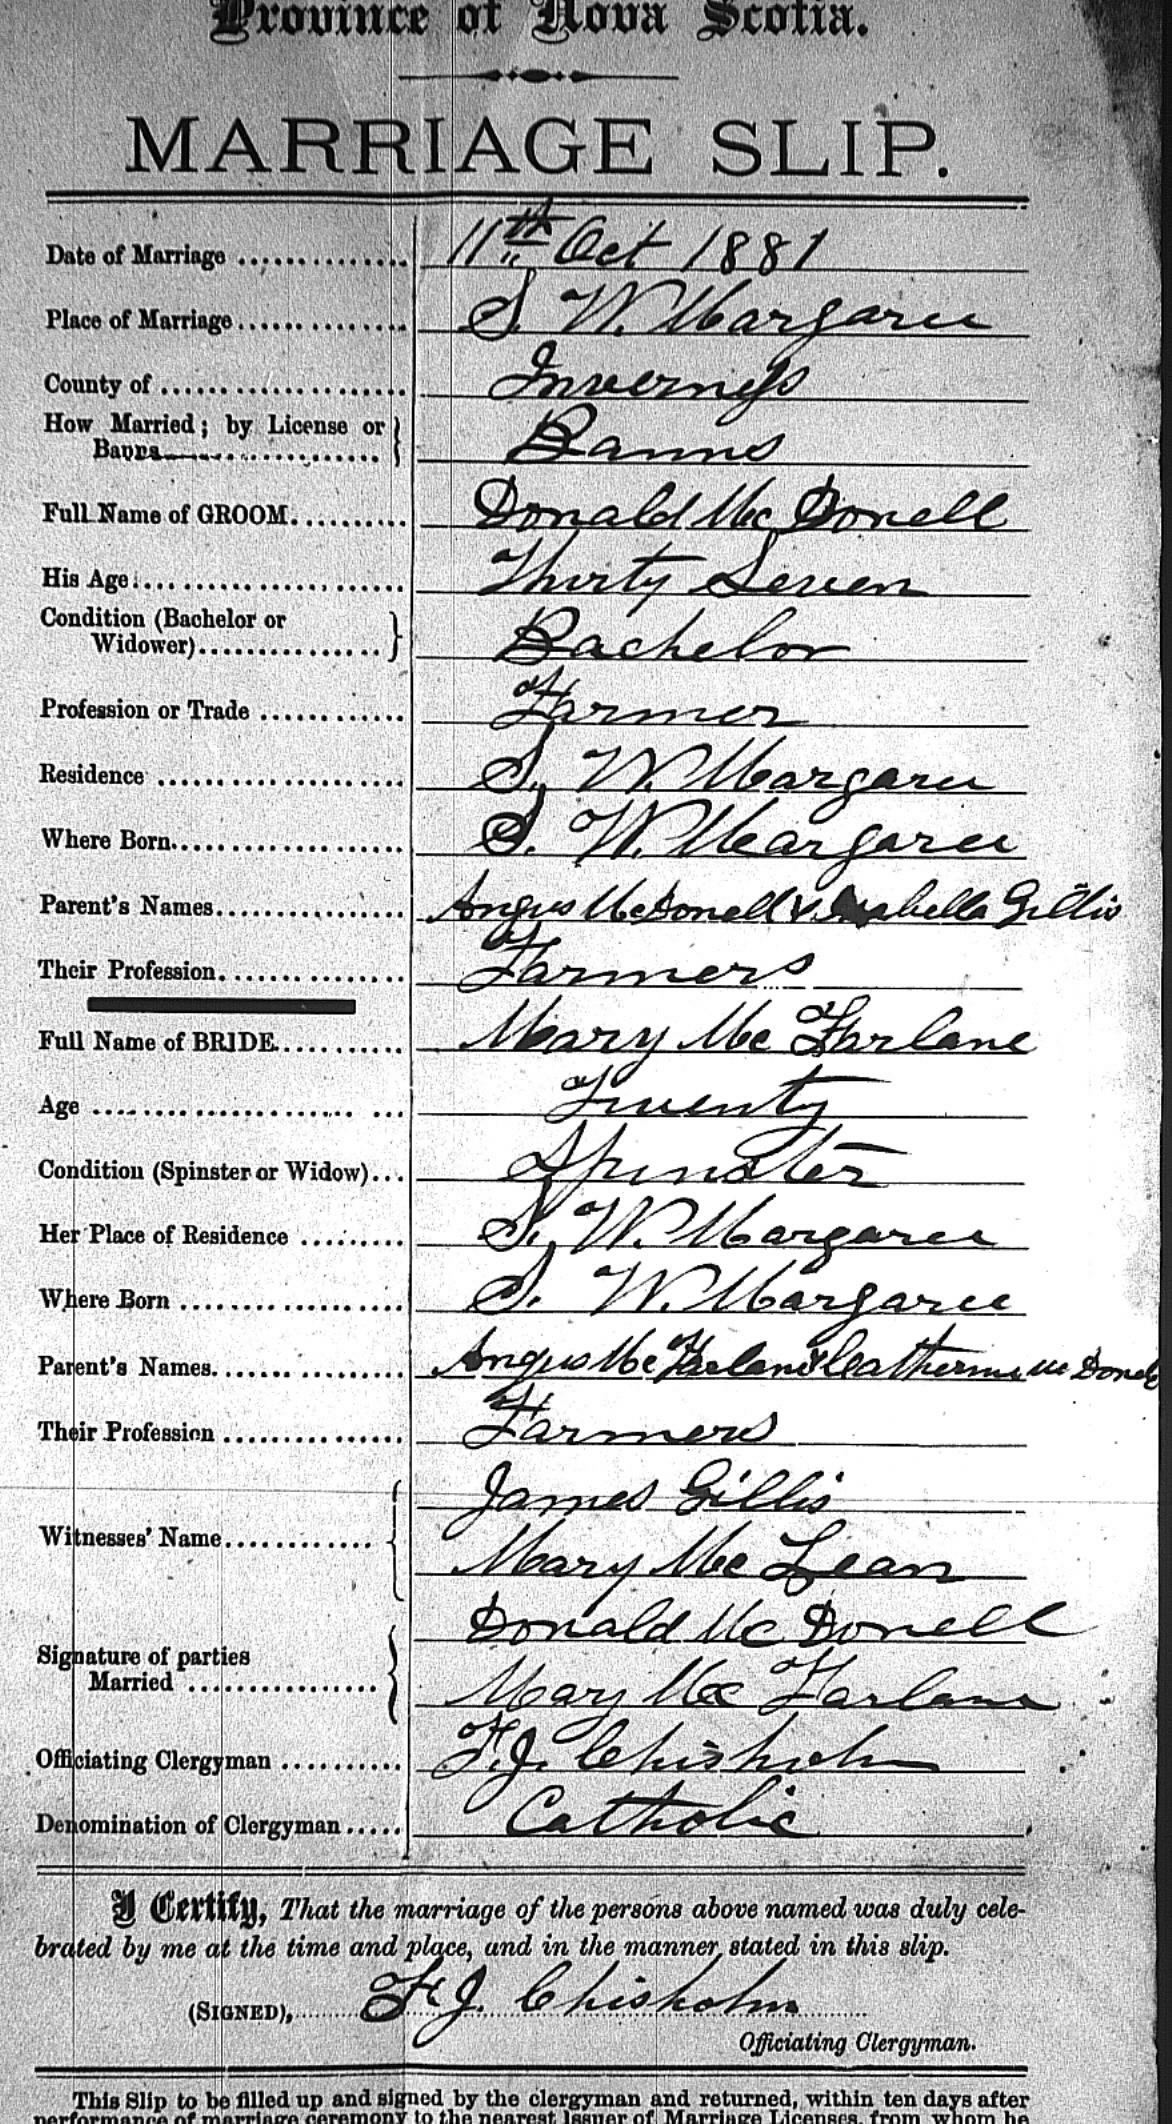 Province of Nova Scotia.
MARRIAGE SLIP.
Date of Marriage .............. 11th Oct 1881
Place of Marriage .............. S. W. Margaree
County of .............. Inverness
How Married; by License or
Banns .............. Banns
Full Name of GROOM .............. Donald McDonell
His Age .............. Thirty Seven
Condition (Bachelor or
Widower) .............. Bachelor
Profession or Trade .............. Farmer
Residence .............. S. W. Margaree
Where Born .............. S. W. Margaree
Parent's Names .............. Angus McDonell & Isabella Gillis
Their Profession .............. Farmers
Full Name of BRIDE .............. Mary McFarlane
Age .............. Twenty
Condition (Spinster or Widow) ... Spinster
Her Place of Residence ......... S. W. Margaree
Where Born .............. S. W. Margaree
Parent's Names .............. Angus McFarlane & Catherine McDonell
Their Profession .............. Farmers
James Gillis
Witnesses' Name ............
Mary McLean
Donald McDonell
Signature of parties
Married ..............
Mary McFarlane
Officiating Clergyman .......... F. J. Chisholm
Denomination of Clergyman ..... Catholic
I Certify, That the marriage of the persons above named was duly cele-
brated by me at the time and place, and in the manner stated in this slip.
(SIGNED), F. J. Chisholm
Officiating Clergyman.
This Slip to be filled up and signed by the clergyman and returned, within ten days after
performance of marriage ceremony to the nearest Issuer of Marriage Licenses, from whom he